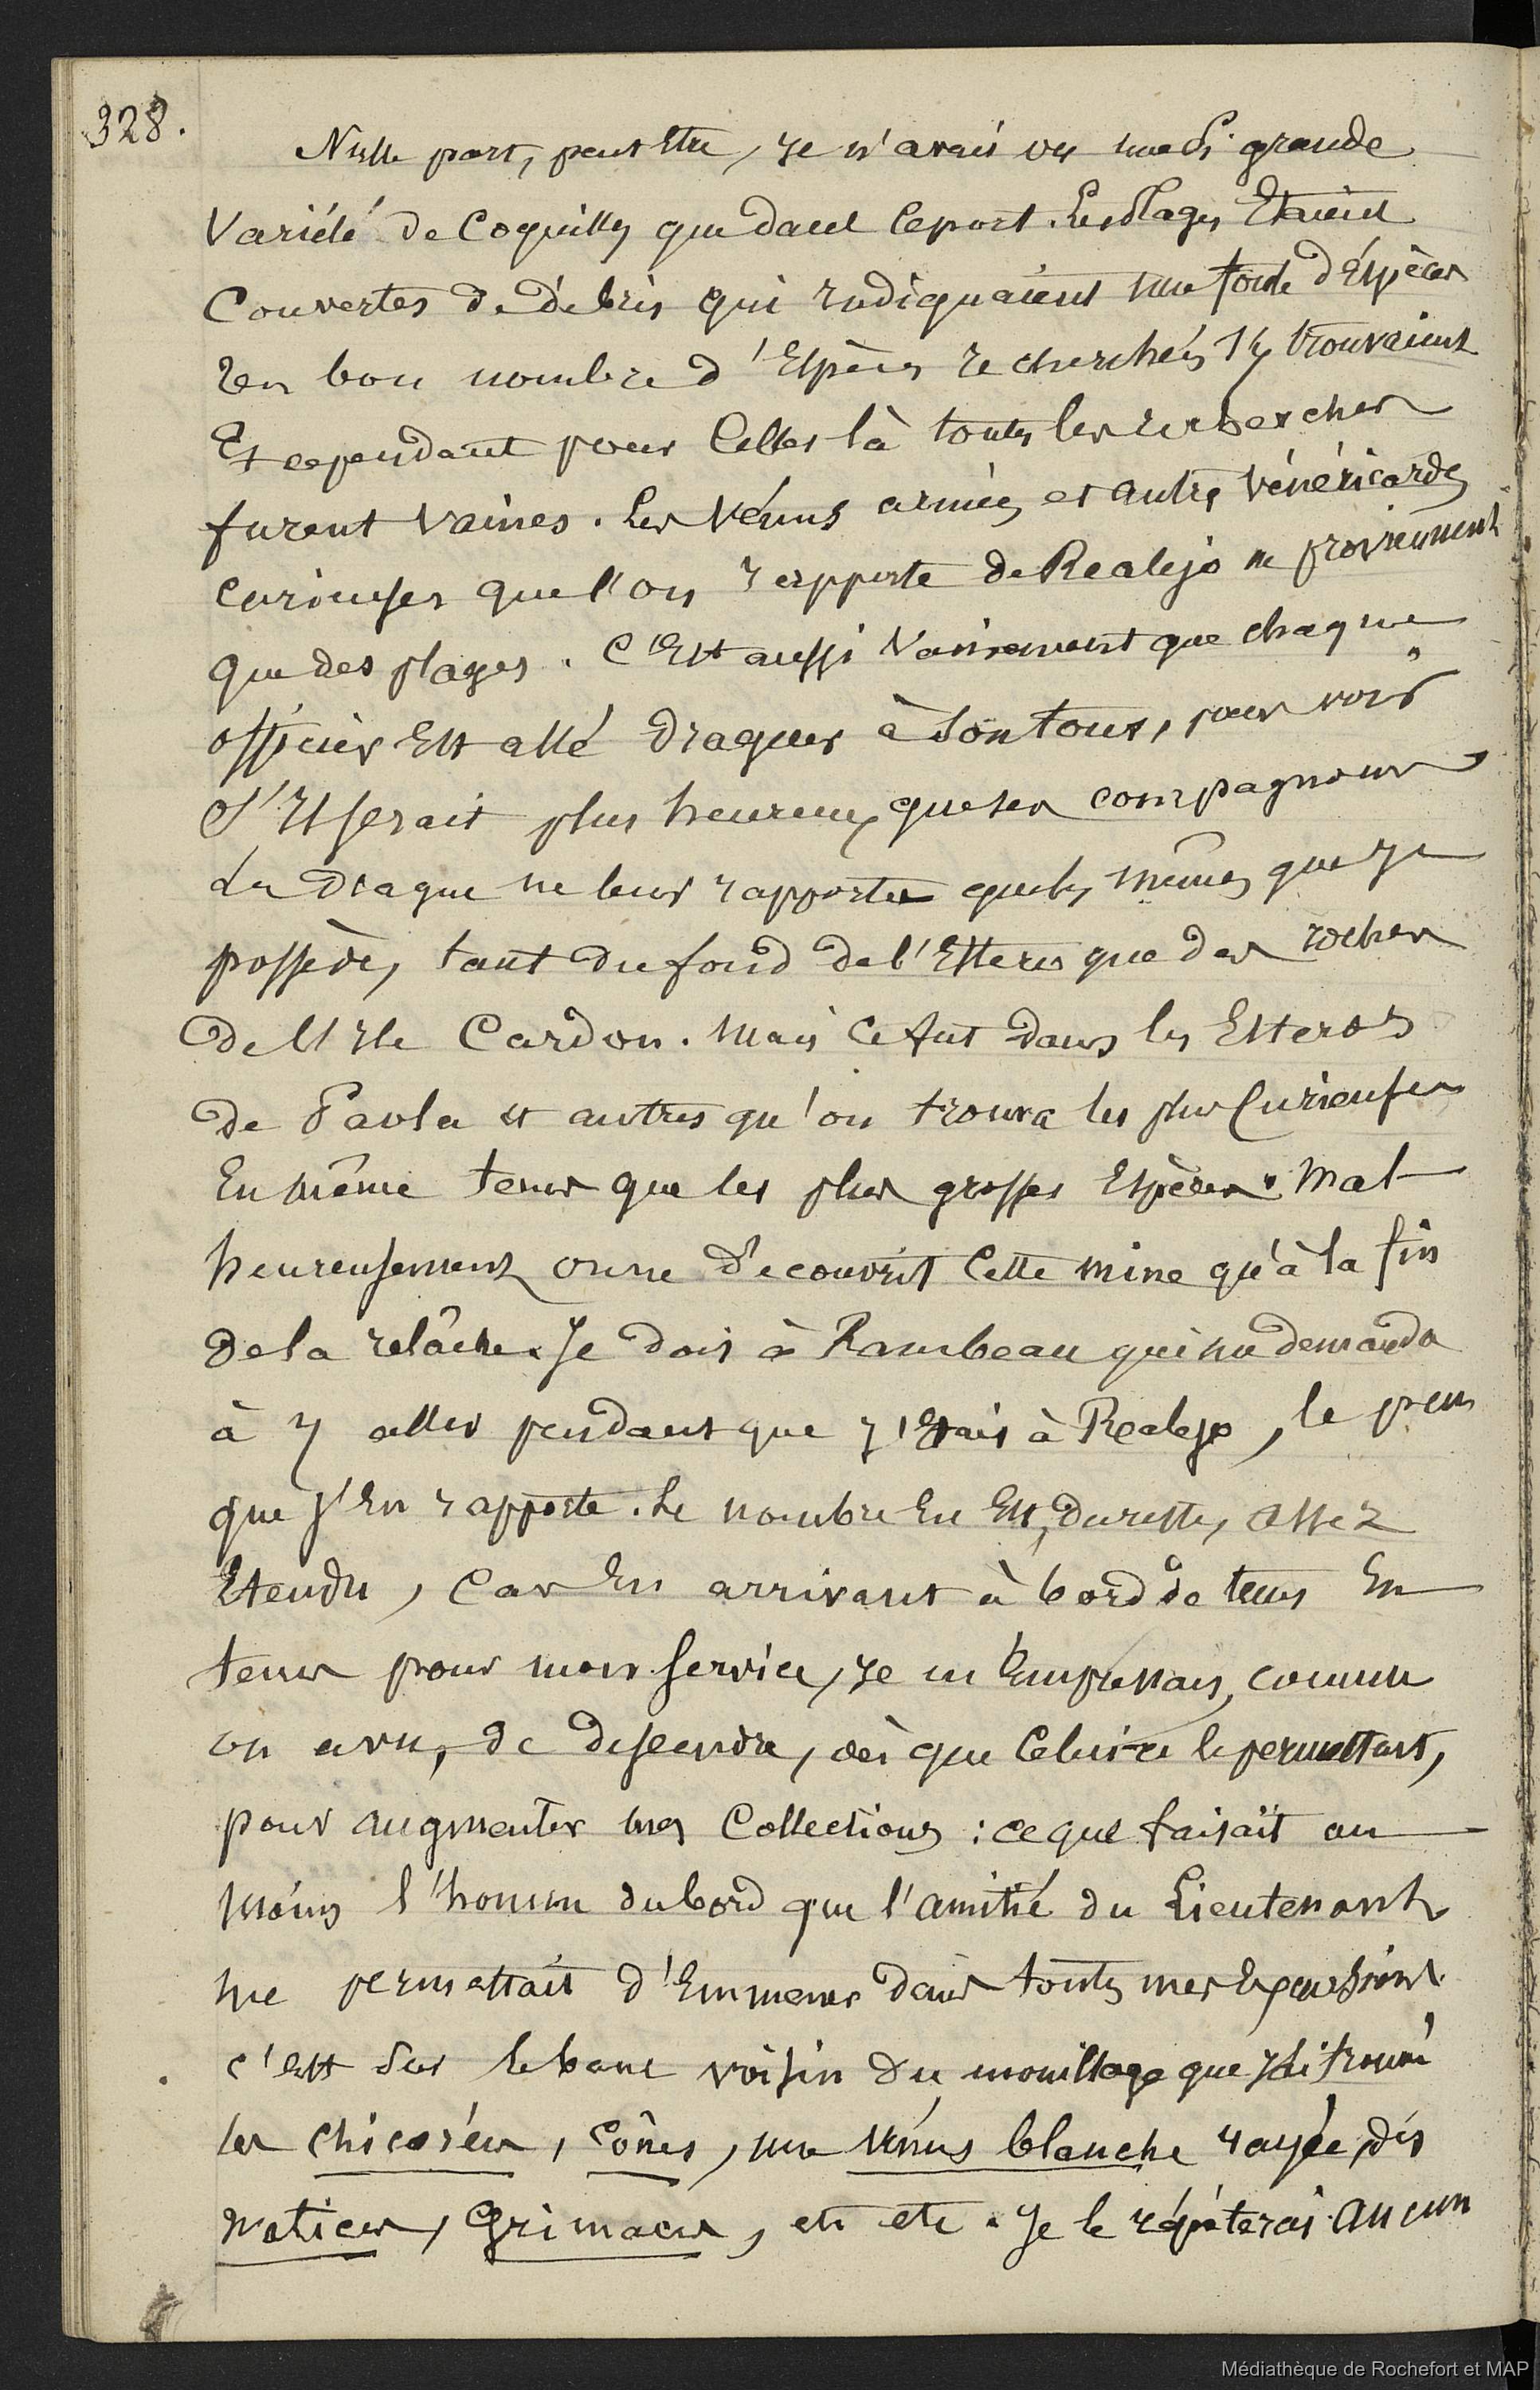 328.
Nulle part, peut être, je n'avais vu une si grande
variété de coquilles que dans ce port. Les plages Etaient
Couvertes de débris qui indiquaient une foule d'Espèces
Un bon nombre d'Espèces recherchées s'y trouvaient
Et cependant pour Celles là toutes les recherches
furent vaines. Les Vénus armées et autres Vénéricardes
curieuses que l'on rapporte de Realejo ne proviennent
que des plages. C'Est aussi Vainement que chaque
officier Est allé Draguer à son tour, pour voir
s'Il serait plus heureux que ses compagnons
La Drague ne leur rapporta que les mêmes que je
possède, tant du fond de l'Estero que des rochers
de l'Ile Cardon. Mais ce fut dans les Esteros
de Paola et autres qu'on trouva les plus Curieuses
En même tems que les plus grosses Espèces. Mal
heureusement on ne découvrit Cette mine qu'à la fin
de la relâche. Je dois à Rambeau qui me demanda
à y aller pendant que j'Etais à Realejo, le peu
que j'En rapporte. Le nombre En Est, du reste, assez
Etendu, Car En arrivant à bord de tems En
tems pour mon Service, je m'Empressais, comme
on a vu, de descendre, dès que Celui-ci le permettait,
pour augmenter mes Collections : ce que faisait au
moins l'homme du bord que l'amitié du Lieutenant
me permettait d'Emmener dans toutes mes Excursions.
c'est sur le banc voisin du mouillage que j'ai trouvé
les chicorées, Cônes, une Vénus blanche rayée, des
Natices, Grimaces, etc etc. Je le répéterai aucun
Médiathèque de Rochefort et MAP